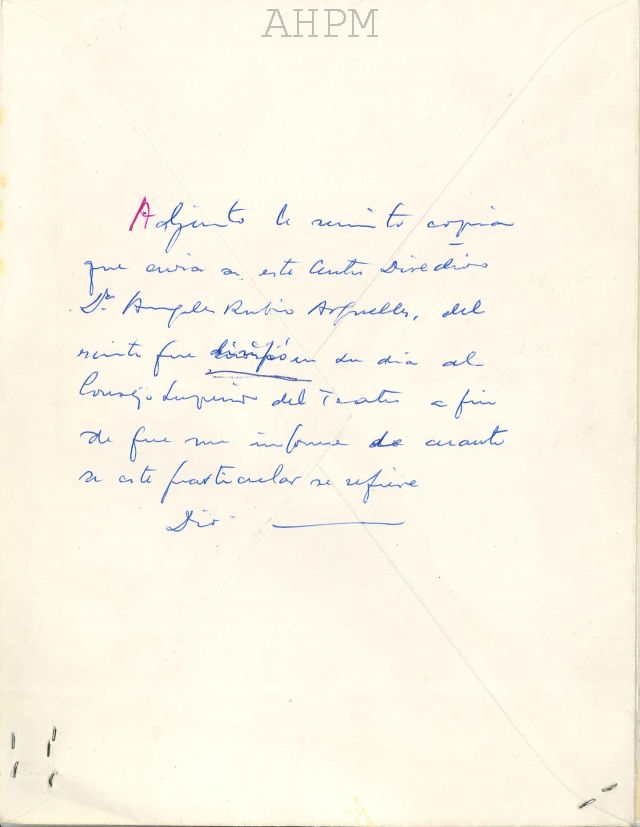 AHPM
Adjunto le remito copia
que envia a este Centro Directivo
Dª Angeles Rubio Argüelles, del
escrito que dirigió en su dia al
Consejo Superior del Teatro a fin
de que me informe de cuanto
a este particular se refiere
Dios